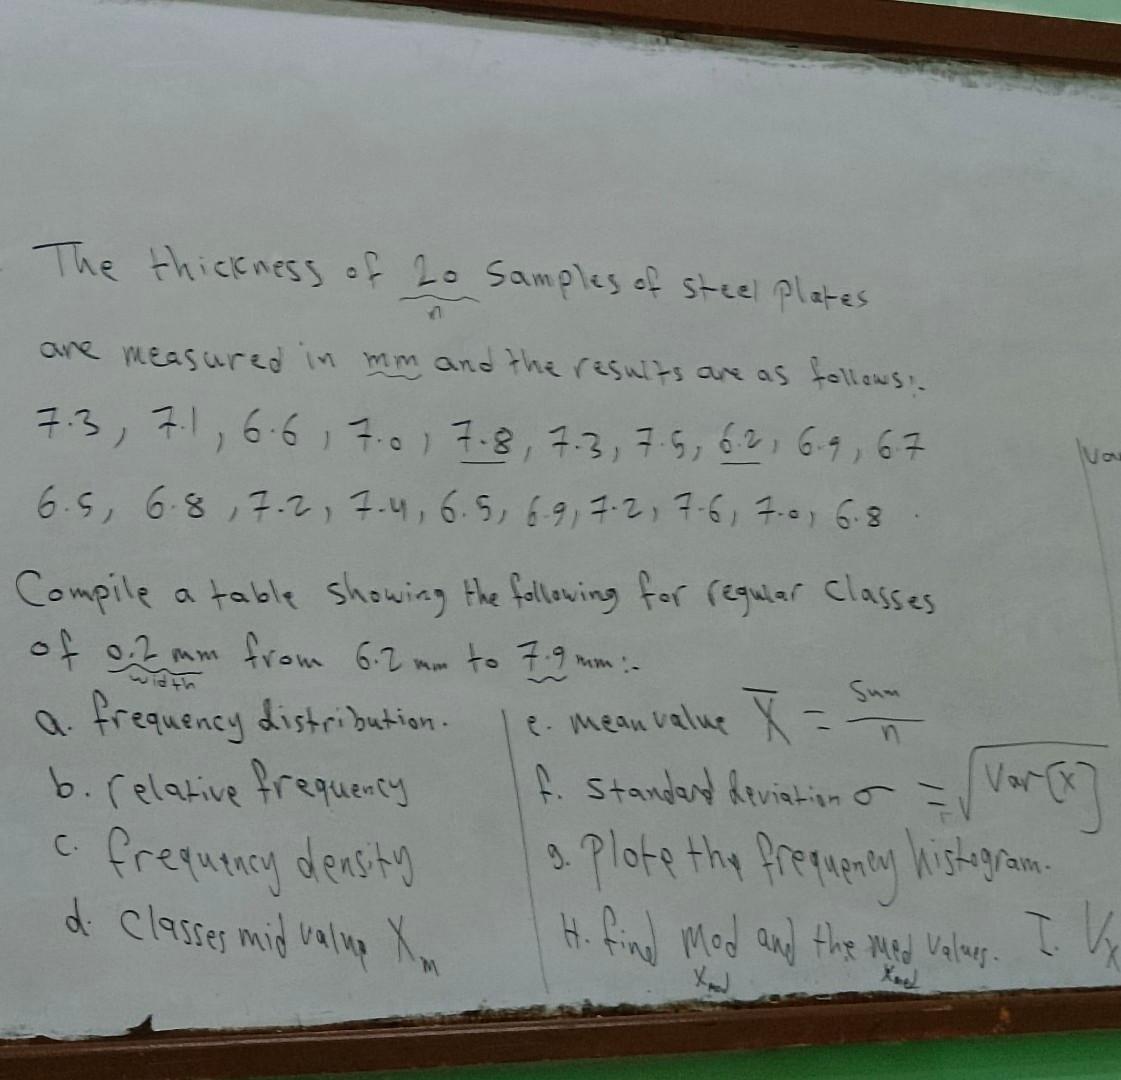 The thickness of 20 Samples of steel plates
n
are measured in mm and the results are as follows:-
7.3, 7.1, 6.6, 7.0, 7.8, 7.3, 7.5, 6.2, 6.9, 6.7
6.5, 6.8, 7.2, 7.4, 6.5, 6.9, 7.2, 7.6, 7.0, 6.8.
Compile a table showing the following for regular classes
of 0.2 mm from 6.2 mm to 7.9 mm:-
width
a. frequency distribution.
b. relative frequency
c. frequency density
d. Classes mid value Xm
e. mean value X̄ = Sum / n
f. Standard deviation σ = √Var[X]
g. Plote the frequency histogram.
H. find Mod and the Med values.
Xmod Xmed
I. Vx